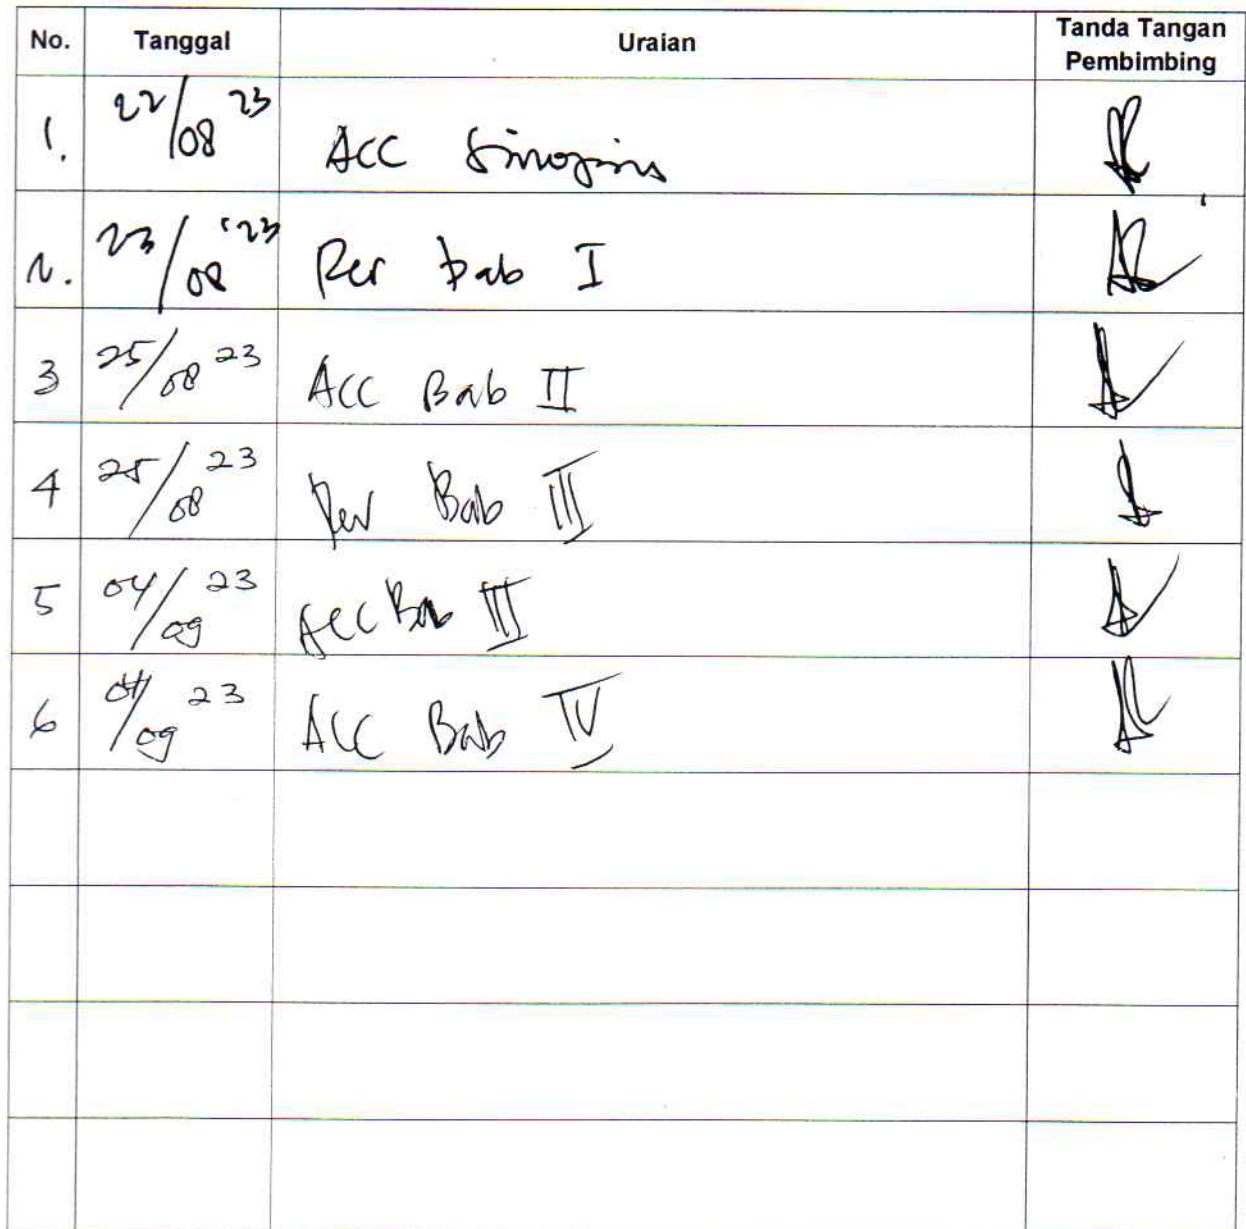 No. Tanggal Uraian Tanda Tangan
Pembimbing
1. 22/08 23 ACC Sinopsis
2. 23/08 '23 Rev bab I
3 25/08 23 ACC Bab II
4 25/08 23 Rev Bab III
5 04/09 23 ACC Bab III
6 04/09 23 ACC Bab IV